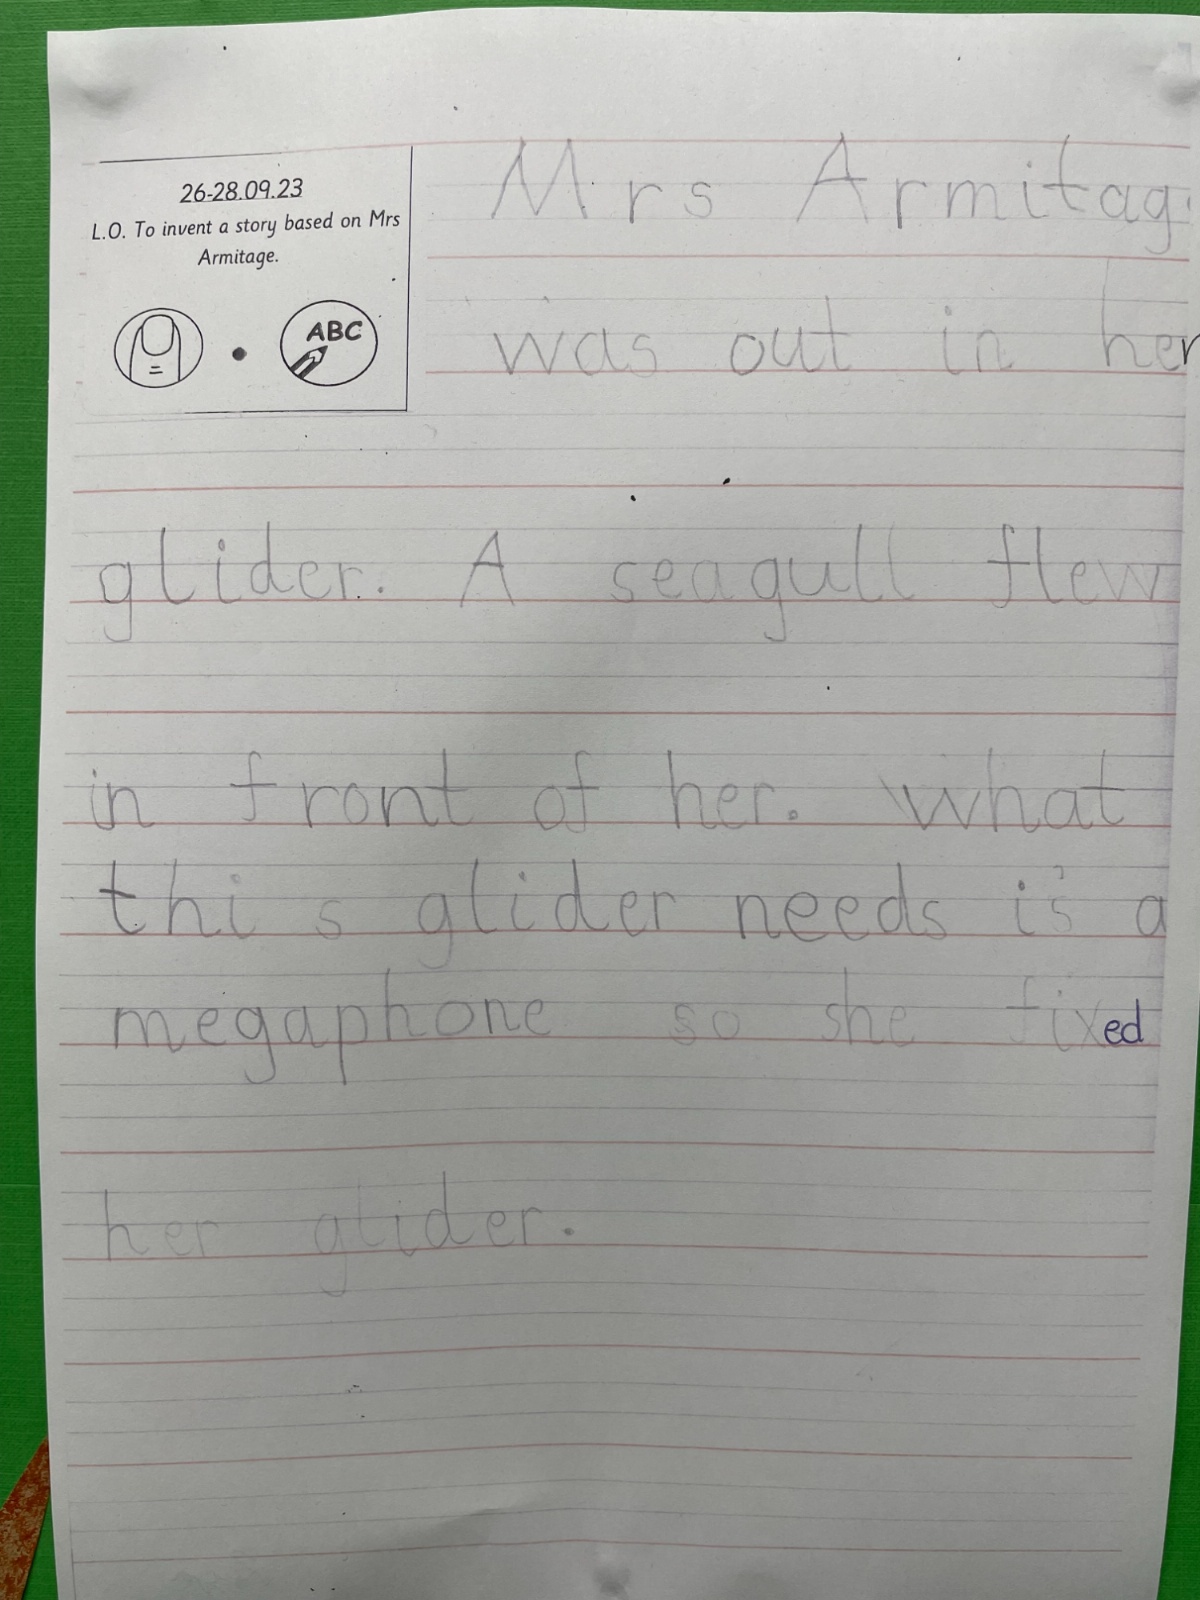 26-28.09.23
L.O. To invent a story based on Mrs
Armitage.
ABC
Mrs Armitag
was out in her
glider. A seagull flew
in front of her. What
this glider needs is a
megaphone so she fixed
her glider.